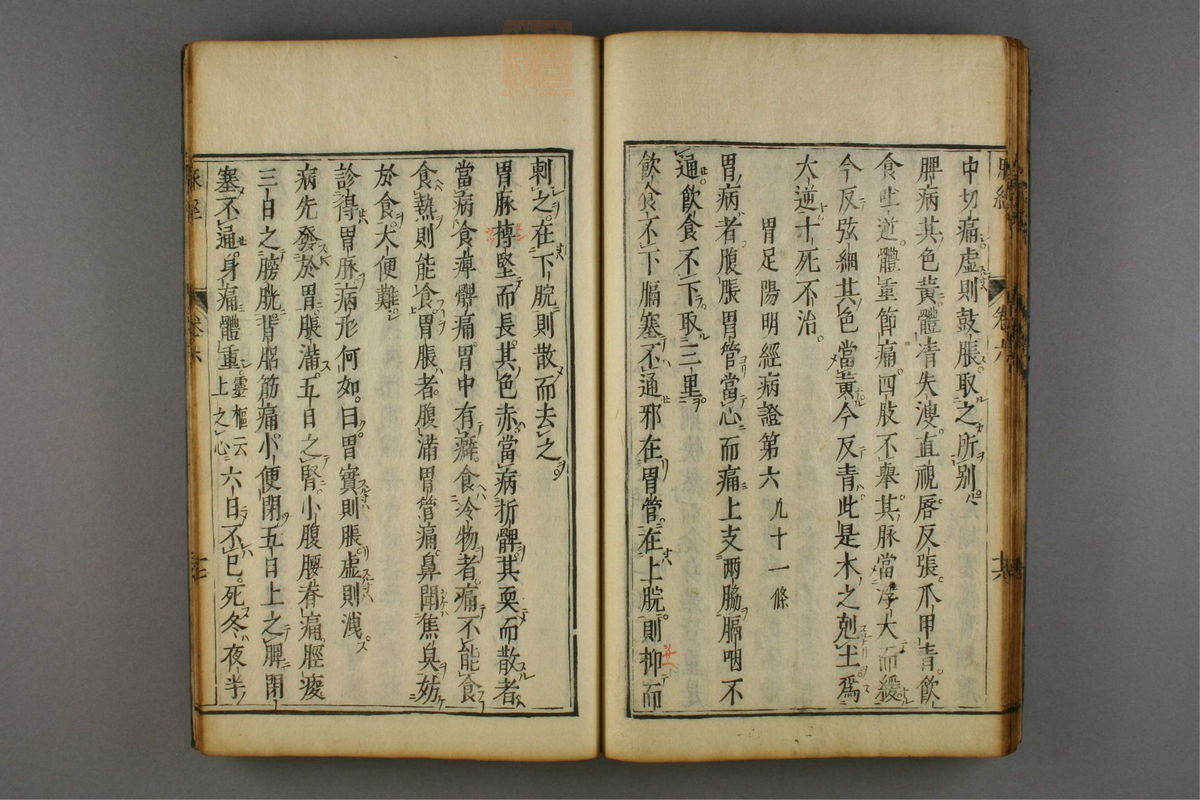 中切痛虛則鼓脹取之所别
脾病其色黃體青失溲直視唇反張爪甲青飲
食吐逆體重節痛四肢不舉其脉當浮大而緩
今反弦細其色當黃今反青此是木之剋土爲
大逆十死不治
胃足陽明經病證第六 九十一條
胃病者腹脹胃管當心而痛上支兩脇膈咽不
通飲食不下取三里
飲食不下膈塞不通邪在胃管在上脘則抑而
刺之在下脘則散而去之
胃脉摶堅而長其色赤當病折髀其耎而散者
當病食痺髀痛胃中有癖食冷物者痛不能食
食熱則能食胃脹者腹滿胃管痛鼻聞焦臭妨
於食大便難
診得胃脉病形何如曰胃實則脹虛則泄
病先發於胃脹滿五日之腎小腹腰脊痛脛痠
三日之膀胱背䏚筋痛小便閉五日上之脾閉
塞不通身痛體重靈樞云上之心六日不已死冬夜半